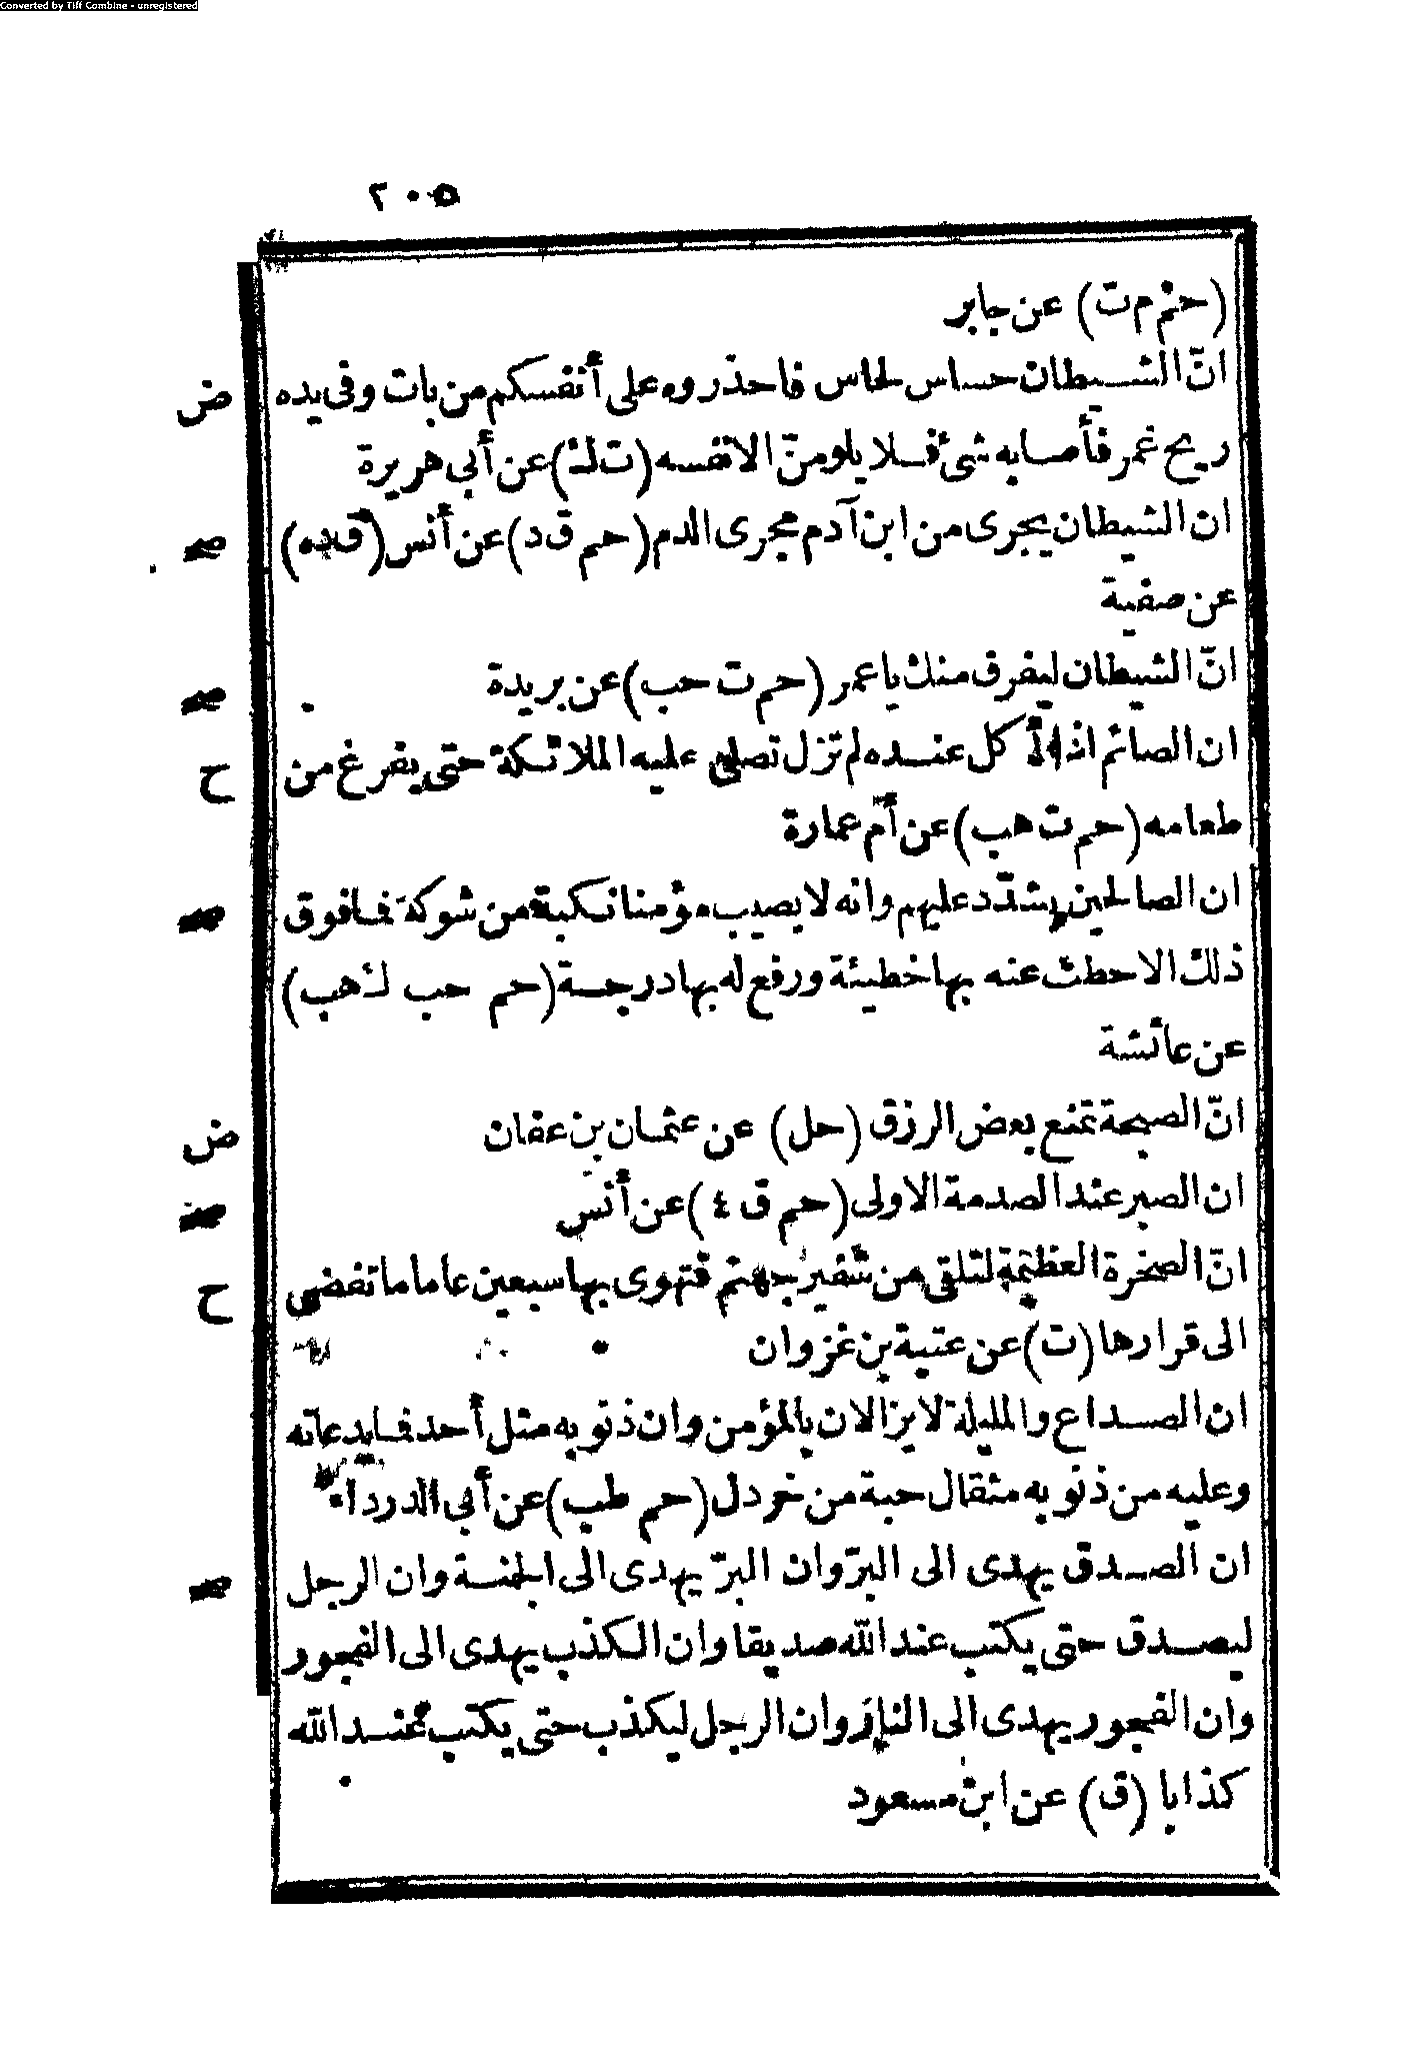 Converted by Tiff Combine - unregistered
٢٠٥
(حم م ت) عن جابر
انّ الشيطان حساس لحاس فاحذروه على أنفسكم من بات وفى يده
ض
ريح غمر فأصابه شئ فلا يلومنّ الا نفسه (ت ك) عن أبى هريرة
ان الشيطان يجرى من ابن آدم مجرى الدم (حم ق د) عن أنس (ق ده)
صح
عن صفية
انّ الشيطان ليفرق منك يا عمر (حم ت حب) عن بريدة
صح
ان الصائم اذا أكل عنده لم تزل تصلى عليه الملائكة حتى يفرغ من
ح
طعامه (حم ت هب) عن أم عمارة
ان الصالحين يشدّد عليهم وانه لا يصيب مؤمنا نكبة من شوكة فما فوق
صح
ذلك الا حطت عنه بها خطيئة ورفع له بها درجة (حم حب ك هب)
عن عائشة
انّ الصبحة تمنع بعض الرزق (حل) عن عثمان بن عفان
ض
ان الصبر عند الصدمة الاولى (حم ق ٤) عن أنس
صح
انّ الصخرة العظيمة لتلقى من شفير جهنم فتهوى بها سبعين عاما ما تفضى
ح
الى قرارها (ت) عن عتبة بن غزوان
ان الصداع والمليلة لا يزالان بالمؤمن وان ذنوبه مثل أحد فما يدعانه
وعليه من ذنوبه مثقال حبة من خردل (حم طب) عن أبى الدرداء
ان الصدق يهدى الى البرّ وان البرّ يهدى الى الجنة وان الرجل
صح
ليصدق حتى يكتب عند الله صديقا وان الكذب يهدى الى الفجور
وان الفجور يهدى الى النار وان الرجل ليكذب حتى يكتب عند الله
كذابا (ق) عن ابن مسعود